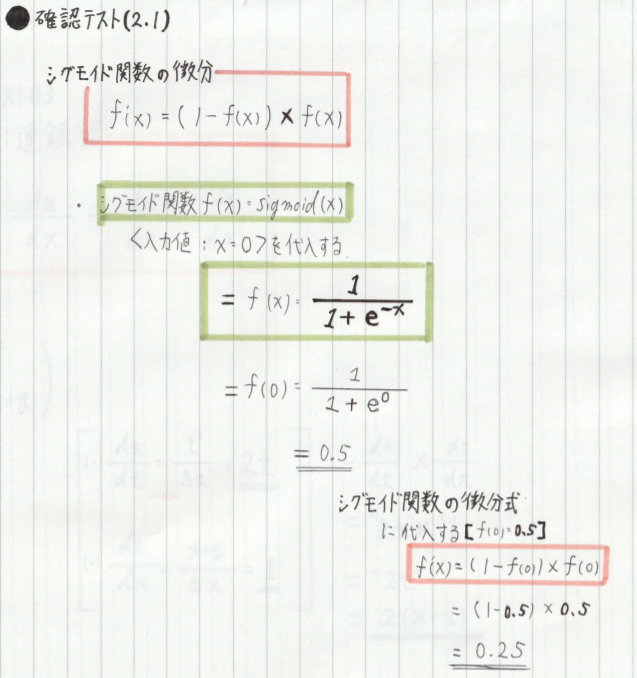 ● 確認テスト(2.1)
シグモイド関数の微分
f'(x) = (1-f(x)) × f(x)
・シグモイド関数 f(x)=sigmoid(x)
<入力値:x=0>を代入する.
= f(x)= 1/(1+e^-x)
= f(0)= 1/(1+e^0)
= 0.5
シグモイド関数の微分式
に代入する[f(0)=0.5]
f'(x)=(1-f(0))×f(0)
= (1-0.5)×0.5
= 0.25